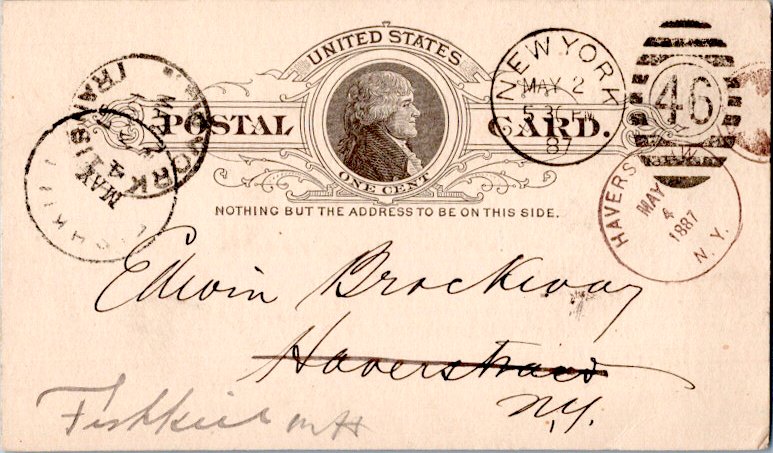 UNITED STATES
POSTAL CARD.
ONE CENT
NOTHING BUT THE ADDRESS TO BE ON THIS SIDE.
NEW YORK
MAY 2
87
46
HAVERS
MAY
4
1887
N.Y.
YORK
TRANSIT
MAY
4
Edwin Brockway
Haverstraw
N.Y.
Fishkill